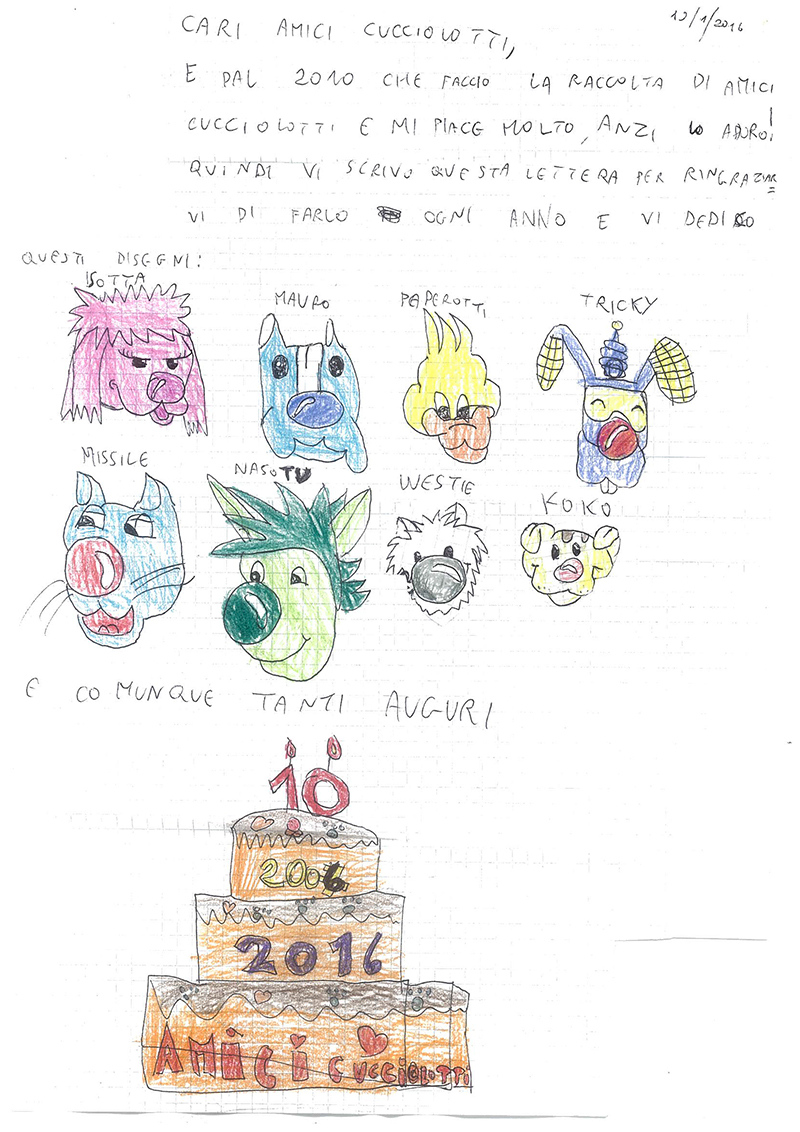 10/1/2016
CARI AMICI CUCCIOLOTTI,
E DAL 2010 CHE FACCIO LA RACCOLTA DI AMICI
CUCCIOLOTTI E MI PIACE MOLTO, ANZI LO ADORO!
QUINDI VI SCRIVO QUESTA LETTERA PER RINGRAZIAR=
VI DI FARLO OGNI ANNO E VI DEDICO
QUESTI DISEGNI:
ISOTTA
MAURO
PAPEROTTI
TRICKY
MISSILE
NASOTU
WESTIE
KOKO
E COMUNQUE TANTI AUGURI
10
2006
2016
AMICI CUCCIOLOTTI